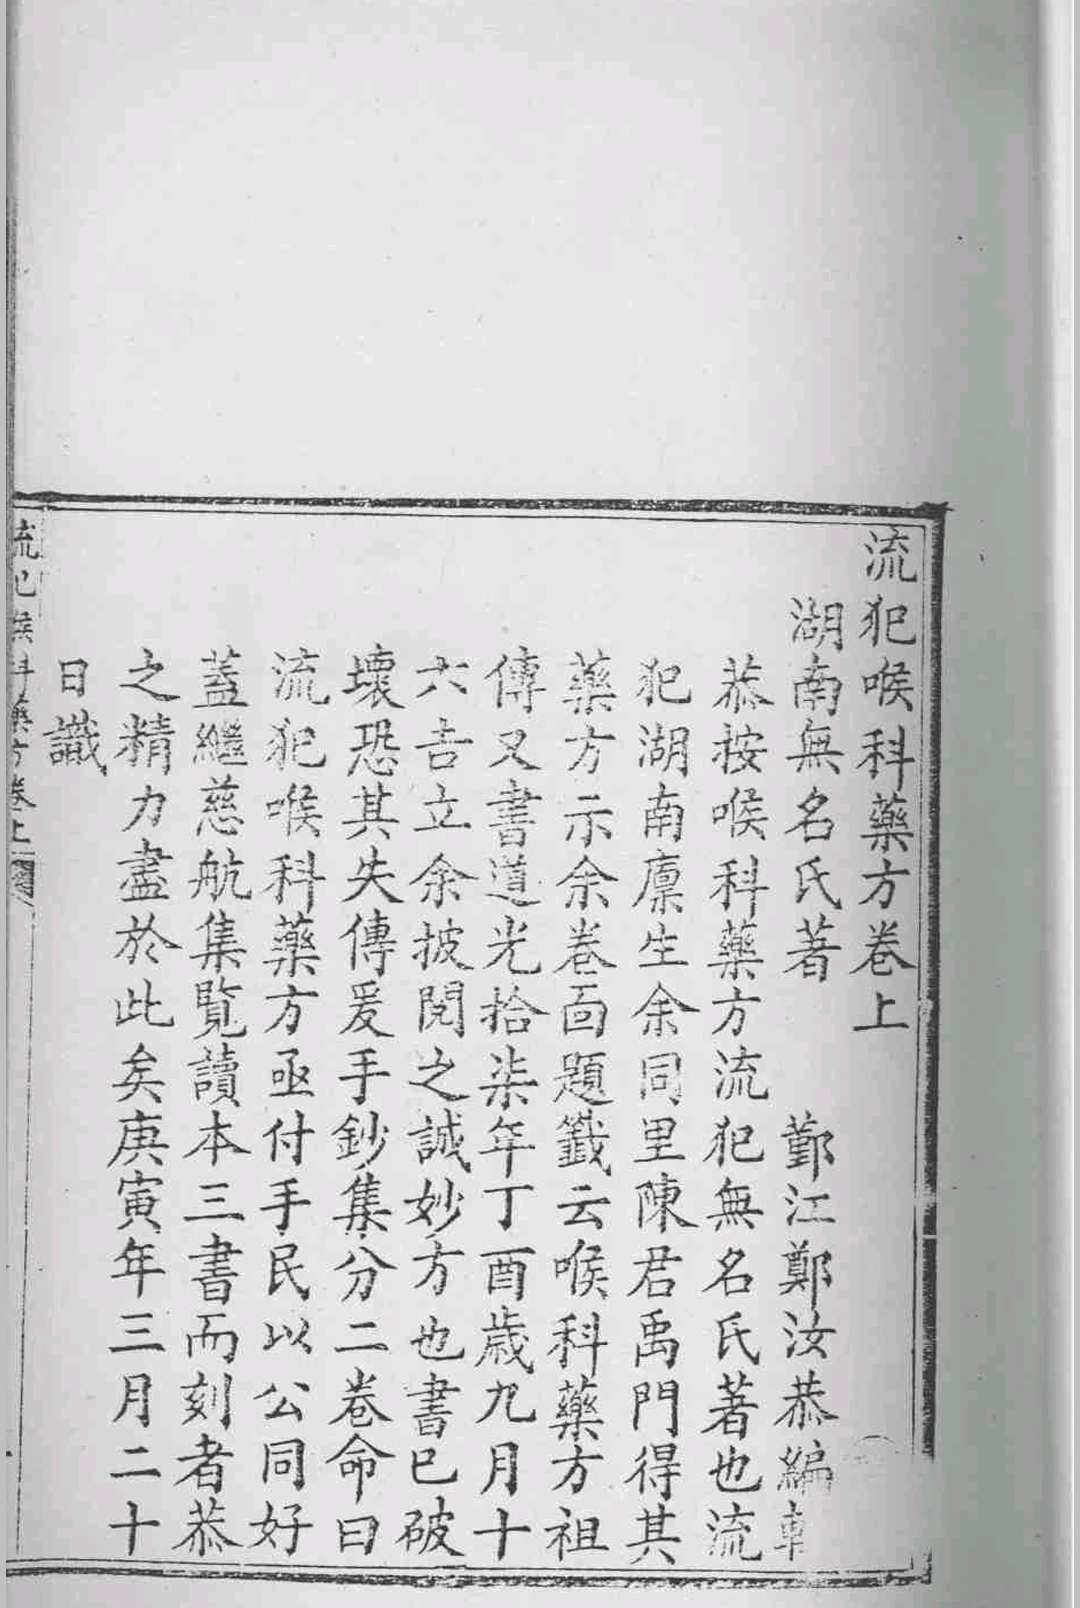 流犯喉科藥方卷上
湖南無名氏著　鄞江鄭汝恭編輯
恭按喉科藥方流犯無名氏著也流
犯湖南廪生余同里陳君禹門得其
藥方示余卷面題籤云喉科藥方祖
傳又書道光拾柒年丁酉歲九月十
六吉立余披閱之誠妙方也書已破
壞恐其失傳爰手鈔集分二卷命曰
流犯喉科藥方亟付手民以公同好
蓋繼慈航集覧讀本三書而刻者恭
之精力盡於此矣庚寅年三月二十
日識
流犯喉科藥方卷上